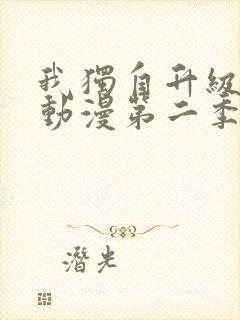 我獨自升級
動漫第二季
潛光